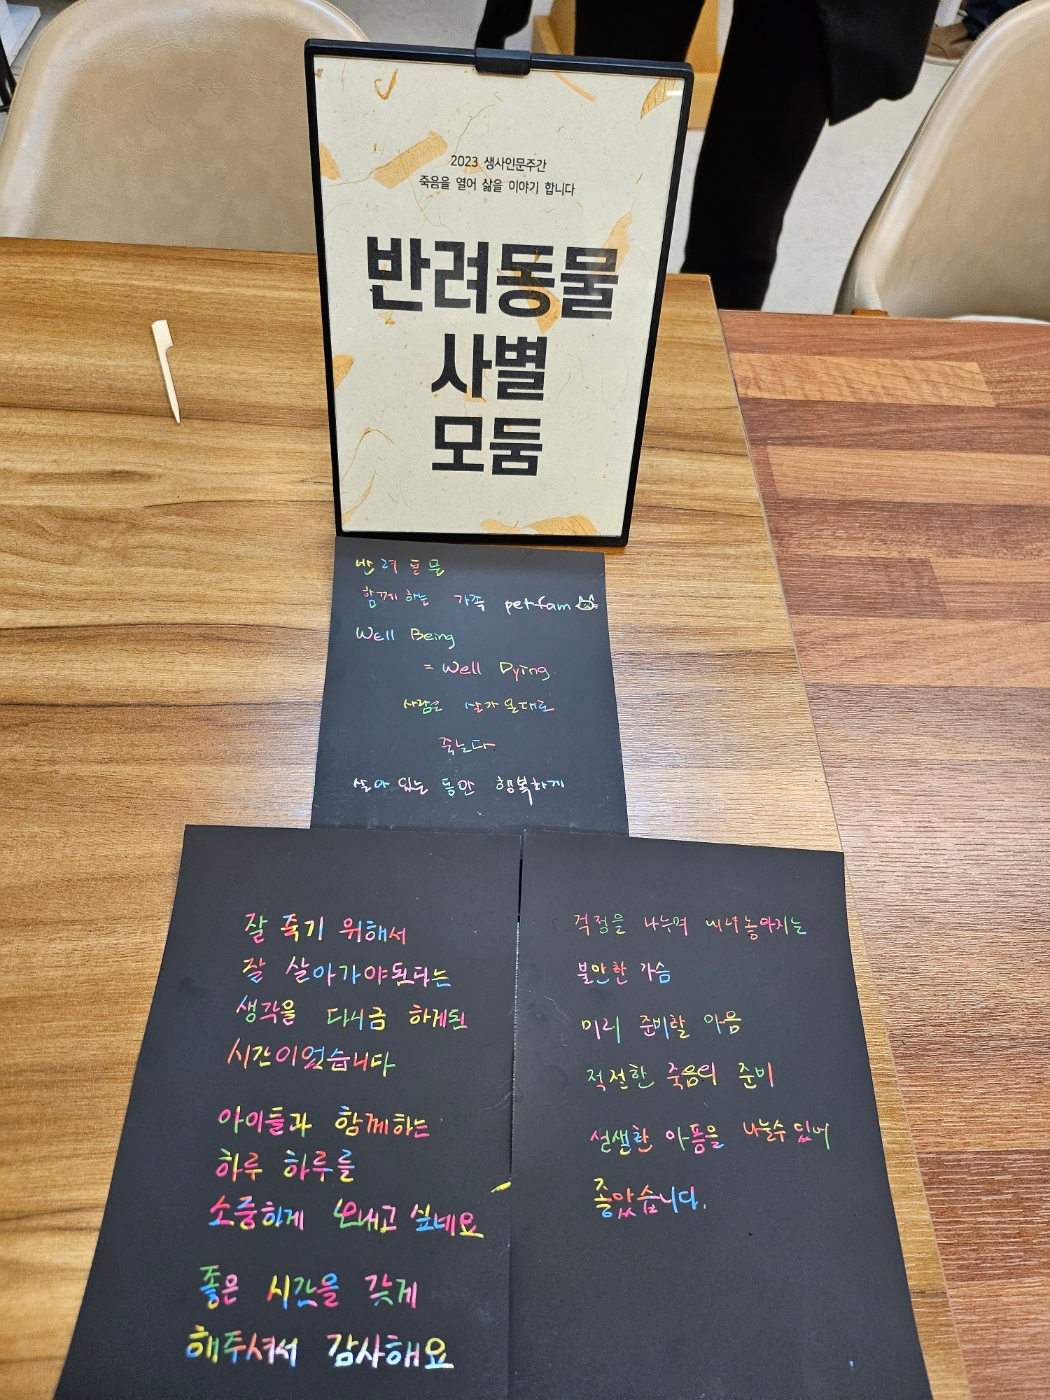 2023 생사인문주간
죽음을 열어 삶을 이야기 합니다
반려동물
사별
모둠
반려동물
함께 하는 가족 petfam
Well Being
= Well Dying
사람은 살아온대로
죽는다
살아 있는 동안 행복하게
잘 죽기 위해서
잘 살아가야된다는
생각을 다시금 하게된
시간이었습니다
아이들과 함께하는
하루 하루를
소중하게 보내고 싶네요
좋은 시간을 갖게
해주셔서 감사해요
걱정을 나누며
불안한 가슴
미리 준비할 마음
적절한 죽음의 준비
아픔을 나눌수 있어
좋았습니다.